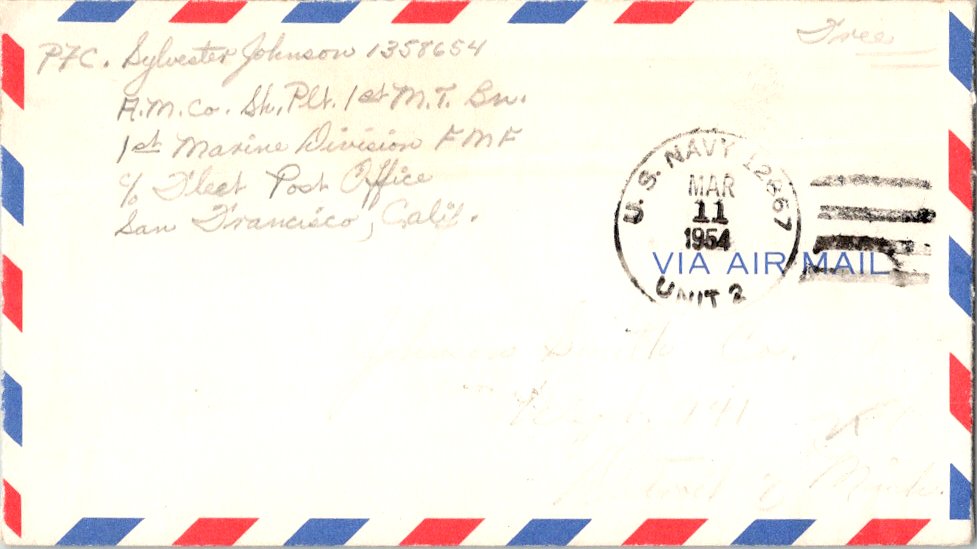 Free
PFC. Sylvester Johnson 1358654
A.M. Co. Sh. Plt. 1st M.T. Bn.
1st Marine Division FMF
c/o Fleet Post Office
San Francisco, Calif.
U.S. NAVY 12867
MAR
11
1954
UNIT 2
VIA AIR MAIL
Smith Co.
Detroit
Mich.